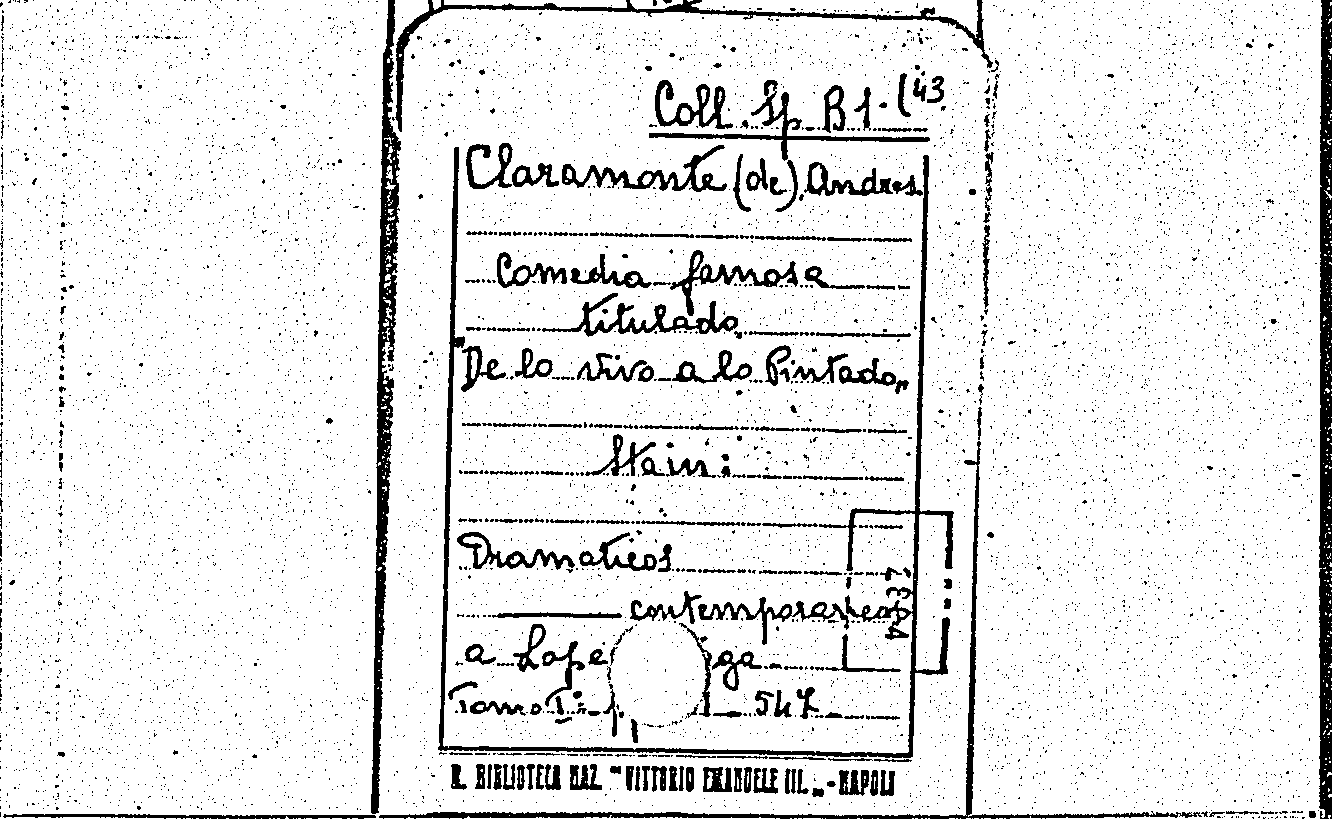 Coll. Sp. B 1. (43
Claramonte (de), Andres.
Comedia famosa
titulado
"De lo vivo a lo Pintado"
Stain:
Dramaticos
contemporaneos
a Lope ga
Tomo I: p. 547
R. BIBLIOTECA NAZ. "VITTORIO EMANUELE III. „ - NAPOLI